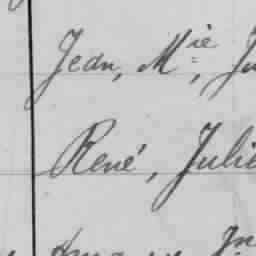 Jean, Mie,
René, Julie